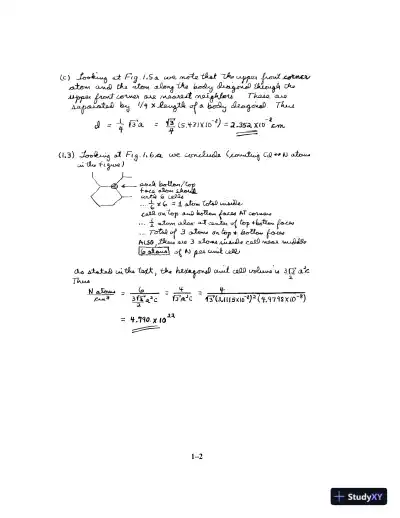 (c) Looking at Fig. 1.5a we note that the upper front corner
atom and the atom along the body diagonal through the
upper front corner are nearest neighbors. These are
separated by 1/4 × length of a body diagonal. Thus
d = 1/4 √3 a = √3/4 (5.431×10⁻⁸) = 2.352 × 10⁻⁸ cm
(1.3) Looking at Fig. 1.6a we conclude (counting Cd or N atoms
in the figure)
each bottom/top
face atom shared
with 6 cells
... 1/6 × 6 = 1 atom total inside
cell on top and bottom faces AT corners
... 1/2 atom also at center of top & bottom faces
... Total of 3 atoms on top & bottom faces
ALSO, there are 3 atoms inside cell near middle
6 atoms of N per unit cell
As stated in the text, the hexagonal unit cell volume is 3√3/2 a²c
Thus
N atoms/cm³ = 6/(3√3/2 a²c) = 4/(√3 a²c) = 4/(√3 (3.1115×10⁻⁸)² (4.9798×10⁻⁸))
= 4.790 × 10²²
1–2
StudyXY